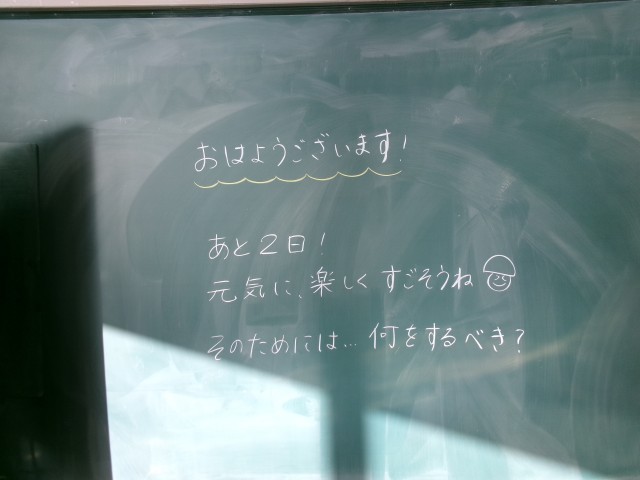 おはようございます!
あと2日!
元気に、楽しくすごそうね
そのためには…何をするべき?